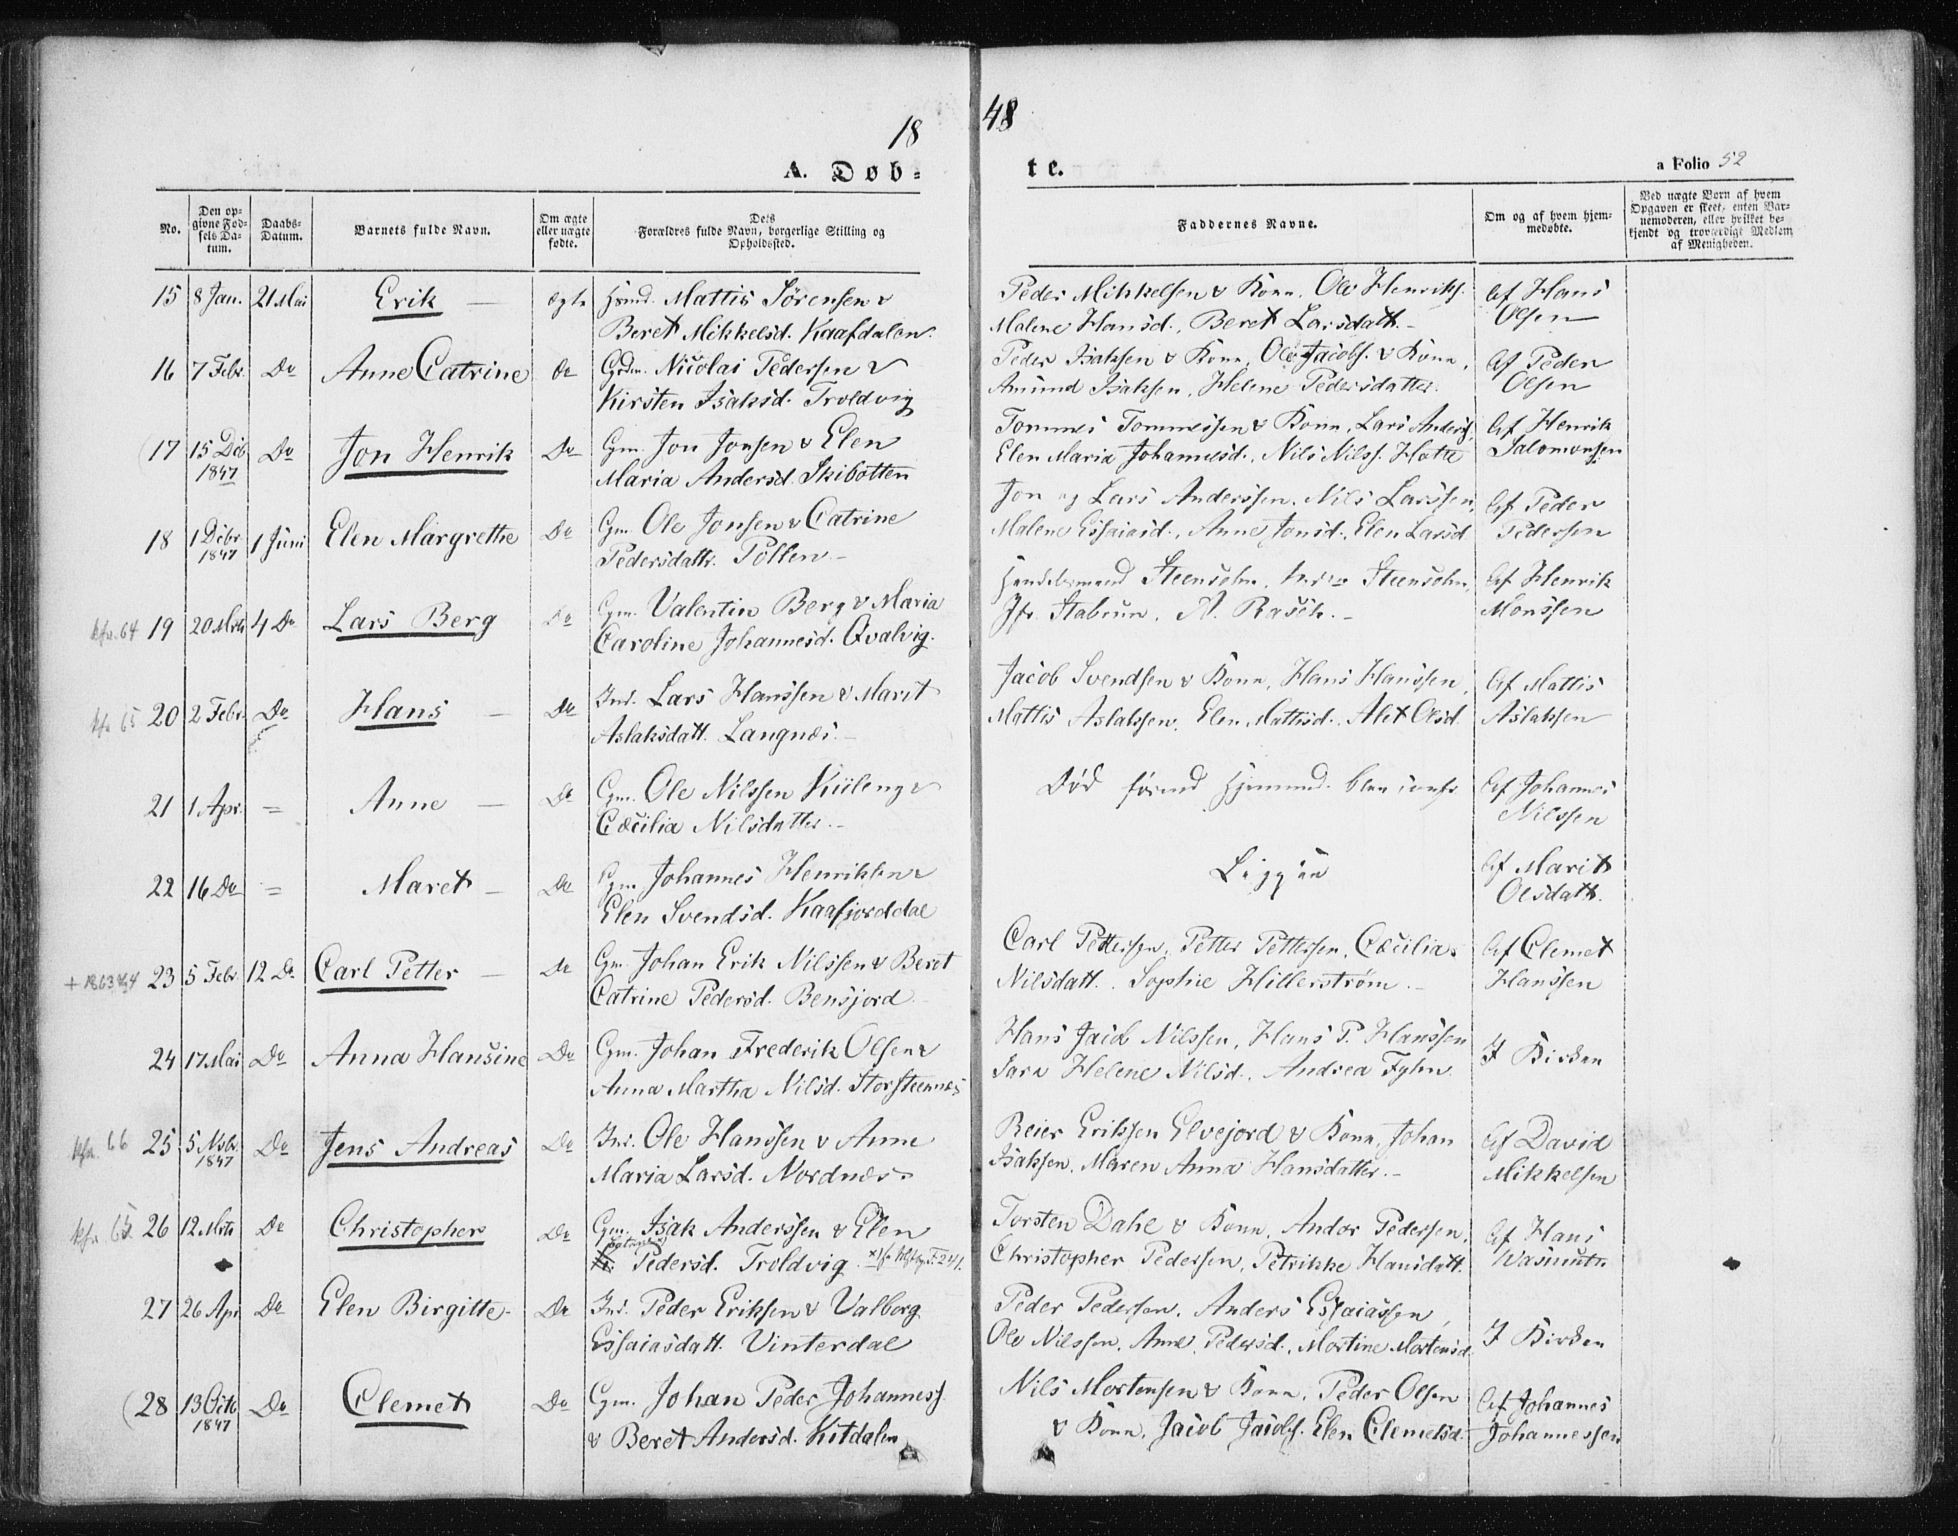 18 48
A. Døb-te.
a Folio 52
No.
Den opgivne Fødsels Datum.
Daabs-Datum.
Barnets fulde Navn.
Om ægte eller uægte fødte.
Dets Forældres fulde Navn, borgerlige Stilling og Opholdssted.
Faddernes Navne.
Om og af hvem hjemmedøbte.
Ved uægte Born af hvem Opgaven er skeet, enten Barnemoderen, eller hvilket bekjendt og troværdigt Medlem af Menigheden.
15 8 Jan. 21 Mai Erik — ægte Huusmd. Mattis Sørensen &
Beret Mikkelsd. Kaafdalen.
Peder Mikkelsen & Kone, Ole Henriks.
Malene Hansd., Beret Larsdatt. —
Af Hans
Olsen
16 7 Febr. Do Anne Catrine Do Grdm. Nicolai Pedersen &
Kirsten Isaksd. Troldvig
Peder Isaksen & Kone, Ole Jacobs. & Kone,
Amund Isaksen, Helene Pedersdatter.
Af Peder
Olsen
17 15 Dcb. 1847 Do Jon Henrik Do Gm. Jon Jonsen & Elen
Maria Andersd. Skibotten
Tommes Tommesen & Kone, Lars Anders.
Elen Maria Johannesd., Nils Nilss. Hatte
Af Henrik
Salomonsen
18 1 Dcbr 1847 1 Juni Elen Margrethe Do Gm. Ole Jonsen & Catrine
Pedersdattr. Pollen —
Jon og Lars Anderssen, Nils Larssen,
Malene Essaiasd., Anne Jonsd., Elen Larsd
Af Peder
Pedersen
kfr. 64 19 20 Mrts 4 Do Lars Berg Do Gm. Valentin Berg & Maria
Caroline Johannesd. Qvalvig.
Handelsmand Steenholm, Steenholm,
Jfr. Stabrun, A. Rasch. —
Af Henrik
Monssen
kfr 65 20 2 Febr. Do Hans — Do Ind. Lars Hanssen & Marit
Aslaksdatt. Langnæs. —
Jacob Svendsen & Kone, Hans Hanssen,
Mattis Aslaksen, Elen Mattisd., Alet Olsd.
Af Mattis
Aslaksen
21 1 Apr. = Anne — Do Gm. Ole Nilssen Kiileng &
Cæcilia Nilsdatter. —
Død førend Hjemmed. blev
Af Johannes
Nilssen
22 16 Do = Maret — Do Gm. Johannes Henriksen &
Elen Svendsd. Kaafjorddal
Af Marit
Olsdatt.
+ 1863 23 5 Febr 12 Do Carl Petter — Do Gm. Johan Erik Nilssen & Beret
Catrine Pedersd. Bensjord —
Carl Pettersen, Petter Pettersen, Cæcilia
Nilsdatt., Sophie Hillerstrøm. —
Af Clemet
Hanssen
24 17 Mai Do Anna Hansine Do Gm. Johan Frederik Olsen &
Anna Martha Nilsd. Storsteennæs
Hans Jacob Nilssen, Hans P. Hanssen
Sara Helene Nilsd., Andrea Fyhn
I Kirken
kfr. 66 25 5 Nvbr. 1847 Do Jens Andreas Do Ind. Ole Hanssen & Anne
Maria Larsd. Nordnæs.
Reier Erikssen Elvejord & Kone, Johan
Isaksen, Maren Anna Hansdatter. —
Af David
Mikkelsen
kfr 65 26 12 Mrts Do Christopher Do Gm. Isak Anderssen & Elen
Pedersd. Troldvig
Torsten Dahl & Kone, Andor Pedersen,
Christopher Pedersen, Petrikke Hansdatt.
Af Hans
Wasmuth
27 26 Apr Do Elen Birgitte Do Ind. Peder Eriksen & Valborg
Essaiasdatt. Vinterdal
Peder Pedersen, Anders Essaiassen,
Ole Nilssen, Anne Pedersd., Martine Mortensd.
I Kirken
28 13 Octb 1847 Do Clemet Do Gm. Johan Peder Johanness.
& Beret Andersd. Kitdalen
Nils Mortensen & Kone, Peder Olsen
& Kone, Jacob Jacobs. Elen Clemetsd.
Af Johannes
Johannessen